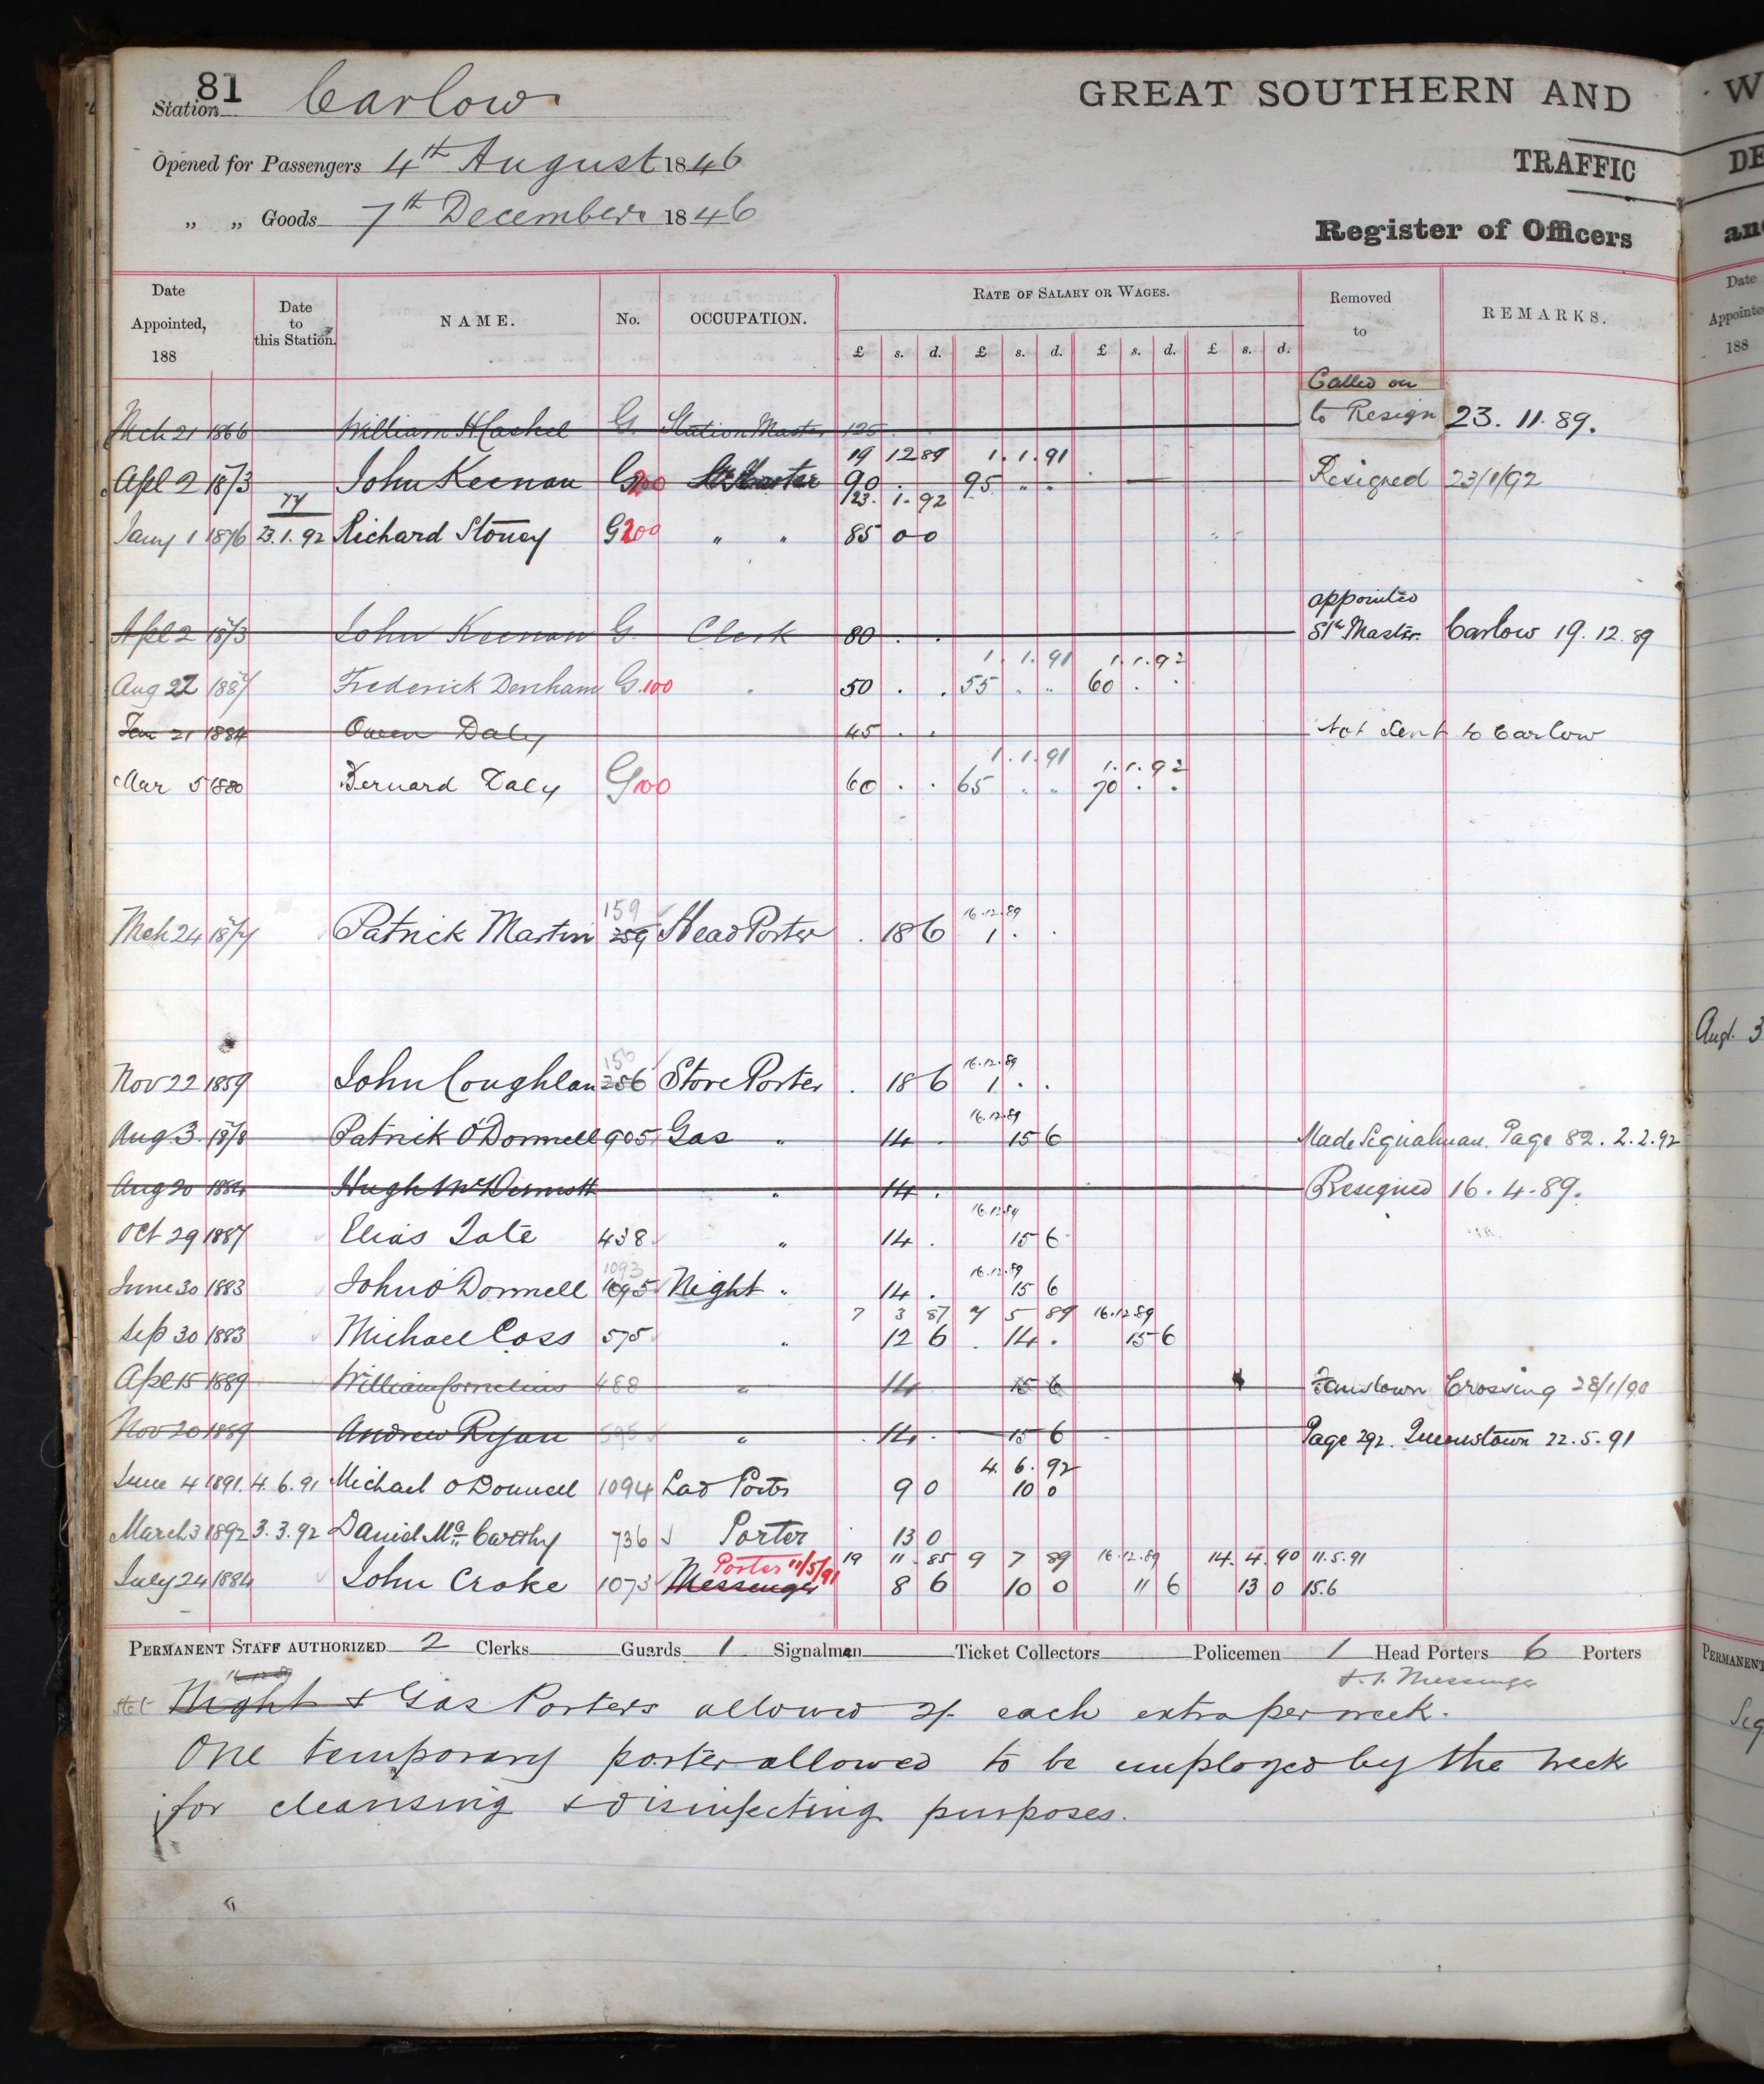 81
Station Carlow
GREAT SOUTHERN AND
Opened for Passengers 4th August 1846
TRAFFIC
„ „ Goods 7th December 1846
Register of Officers
Date Appointed, 188
Date to this Station.
NAME.
No.
OCCUPATION.
RATE OF SALARY OR WAGES.
£ s. d. £ s. d. £ s. d. £ s. d.
Removed to
REMARKS.
Called on
Mch 21 1866 William H Cashel G. Station Master 125 . . to Resign 23. 11. 89.
19 12 89 1. 1. 91
Apl 2 1873 John Keenan G 200 90 . 95 „ „ Resigned 23/1/92
23. 1. 92
Jany 1 1876 23. 1. 92 Richard Stoney G 200 „ „ 85 0 0
appointed
Apl 2 1873 John Keenan G. Clerk 80 . . Stn Master. Carlow 19. 12. 89
1. 1. 91 1. 1. 92
Aug 22 1887 Frederick Denham G. 100 „ 50 . . 55 „ „ 60 . .
Jan 21 1884 Owen Daly 45 . . Not Sent to Carlow
1. 1. 91 1. 1. 92
Mar 5 1880 Bernard Daly G 100 60 . . 65 „ „ 70 . .
159 16.12.89
Mch 24 1877 Patrick Martin 259 Head Porter . 18 6 1 . .
16.12.89
Nov 22 1859 John Coughlan 256 Store Porter . 18 6 1 . .
16.12.89
Aug. 3. 1878 Patrick O'Donnell 905 Gas „ 14 . 15 6 Made Signalman. Page 82. 2. 2. 92
Aug 20 1884 Hugh McDermott „ 14 . Resigned 16. 4. 89.
16.12.89
Oct 29 1887 Elias Tate 438 „ 14 . 15 6
1093 16.12.89
June 30 1883 John O'Donnell 1095 Night „ 14 . 15 6
7 3 87 7 5 89 16.12.89
Sep 30 1883 Michael Coss 575 „ 12 6 . 14 . 15 6
Apl 15 1889 William Cornelius 488 „ 14 15 6 Crossing 28/1/90
Nov 20 1889 Andrew Ryan 595 „ . 14 . 15 6 Page 292. Queenstown 22. 5. 91
4. 6. 92
June 4 1891. 4. 6. 91 Michael O Donnell 1094 Lad Porter 9 0 10 0
March 3 1892 3. 3. 92 Daniel Mc Carthy 736 Porter 13 0
Porter 11/5/91 19 11 85 9 7 89 16.12.89 14. 4. 90 11. 5. 91
July 24 1884 John Croke 1073 Messenger 8 6 10 0 11 6 13 0 15.6
PERMANENT STAFF AUTHORIZED 2 Clerks Guards 1 Signalmen Ticket Collectors Policemen 1 Head Porters 6 Porters
16.12.89
& 1. Messenger
Night & Gas Porters allowed 2/- each extra per week.
One temporary porter allowed to be employed by the week
for cleansing & disinfecting purposes.
W
DE
and
Date
Appointed
188
Augt. 3
PERMANENT
Sig